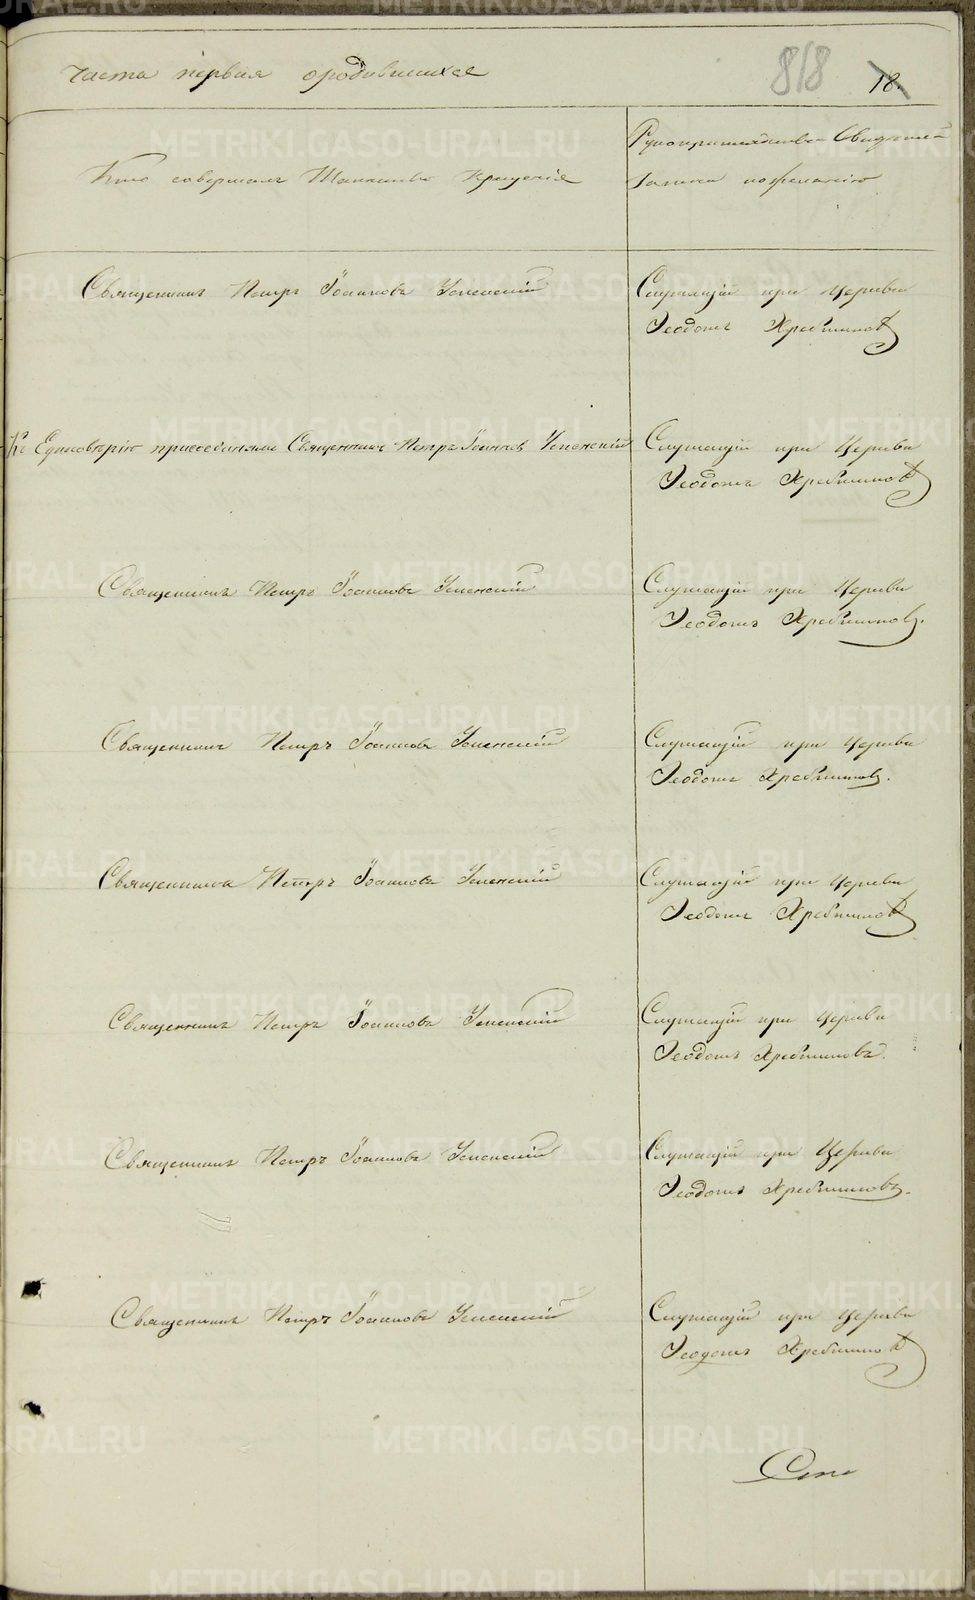 Часть первая о родившихся
818
18.
Кто совершалъ Таинство Крещенія
Рукоприкладство Свидѣтелей
Записи по желанію
Священникъ Петръ Іоанновъ Успенскій
Служащій при Церкви
Ѳеодотъ Хребтиковъ
Къ Единовѣрію присоединялъ Священникъ Петръ Іоанновъ Успенскій
Служащій при Церкви
Ѳеодотъ Хребтиковъ
Священникъ Петръ Іоанновъ Успенскій
Служащій при Церкви
Ѳеодотъ Хребтиковъ.
Священникъ Петръ Іоанновъ Успенскій
Служащій при Церкви
Ѳеодотъ Хребтиковъ.
Священникъ Петръ Іоанновъ Успенскій
Служащій при Церкви
Ѳеодотъ Хребтиковъ
Священникъ Петръ Іоанновъ Успенскій
Служащій при Церкви
Ѳеодотъ Хребтиковъ.
Священникъ Петръ Іоанновъ Успенскій
Служащій при Церкви
Ѳеодотъ Хребтиковъ.
Священникъ Петръ Іоанновъ Успенскій
Служащій при Церкви
Ѳеодотъ Хребтиковъ
METRIKI.GASO-URAL.RU